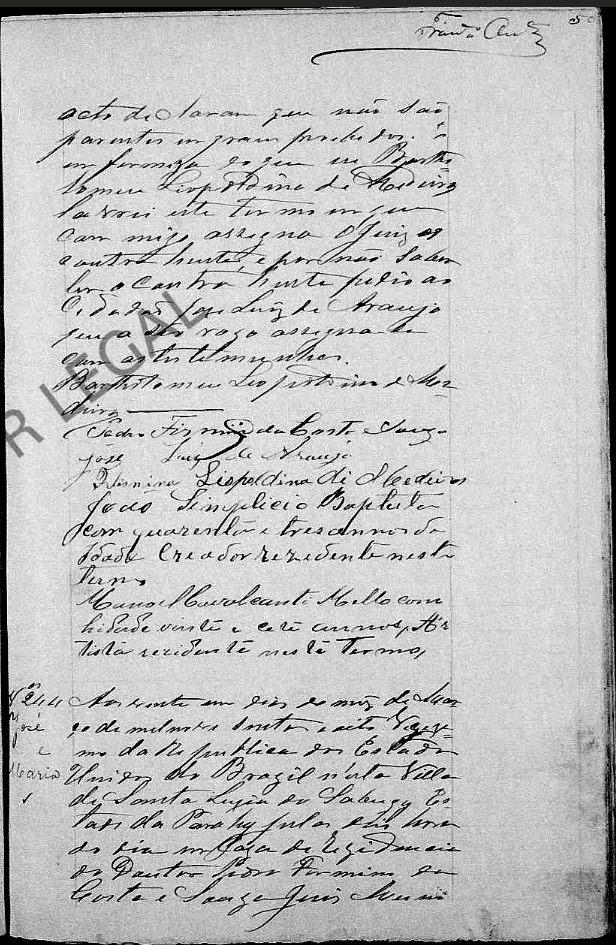 50
acto declaram que não são
parentes em gram prohebidos. E
em firmeza do que eu Bartho
lomeu Leopoldino de Medeiros
lavrei este termo em que
com migo assigna o Juiz os
contra hentes e por não saber
ler o contra hente pedio ao
Cidadão José Luiz de Araujo
que a seu rogo assigna se
com as testemunhas.
Bartholomeu Leopoldino de Me-
deiros
Pedro Firmino da Costa e Souza
José Luiz de Araujo
Leopoldina di Medeiros
João Simplicio Baptista
com quarenta e tres annos de
Idade Creador rezidente neste
termo
Manoel Cavalcanti Mello com
hidade vinte e cete annos, Ar
tista rezidente neste Termo,
Nº 244
José
e
Maria
Aos vinte um dias do mez de Mar
ço de mil nove centos e oito Vigezi-
mo da Republica dos Estados
Unidos do Brazil n'esta Villa
de Santa Luzia do Sabugy Es
tado da Parahyba pelas dois horas
do dia em Caza de Rezidencia
do Doutor Pedro Firmino da
Costa e Souza Juiz Muni
R LEGAL